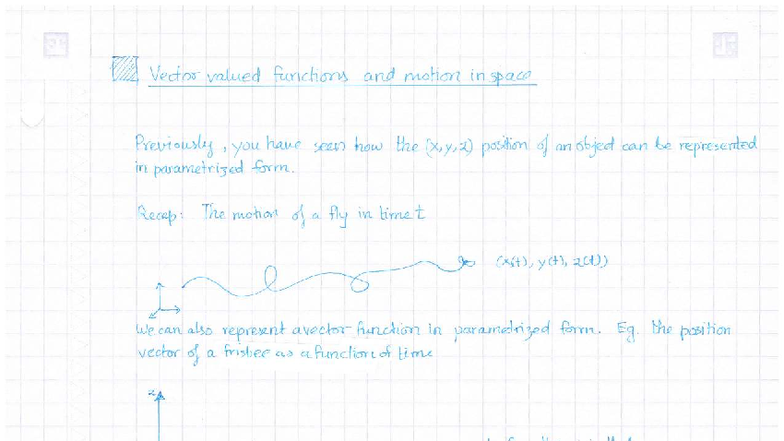 Vector valued functions and motion in space
Previously, you have seen how the (x,y,z) position of an object can be represented
in parametrized form.
Recap: The motion of a fly in time t
(x(t), y(t), z(t))
We can also represent a vector-function in parametrized form. Eg. the position
vector of a frisbee as a function of time
z